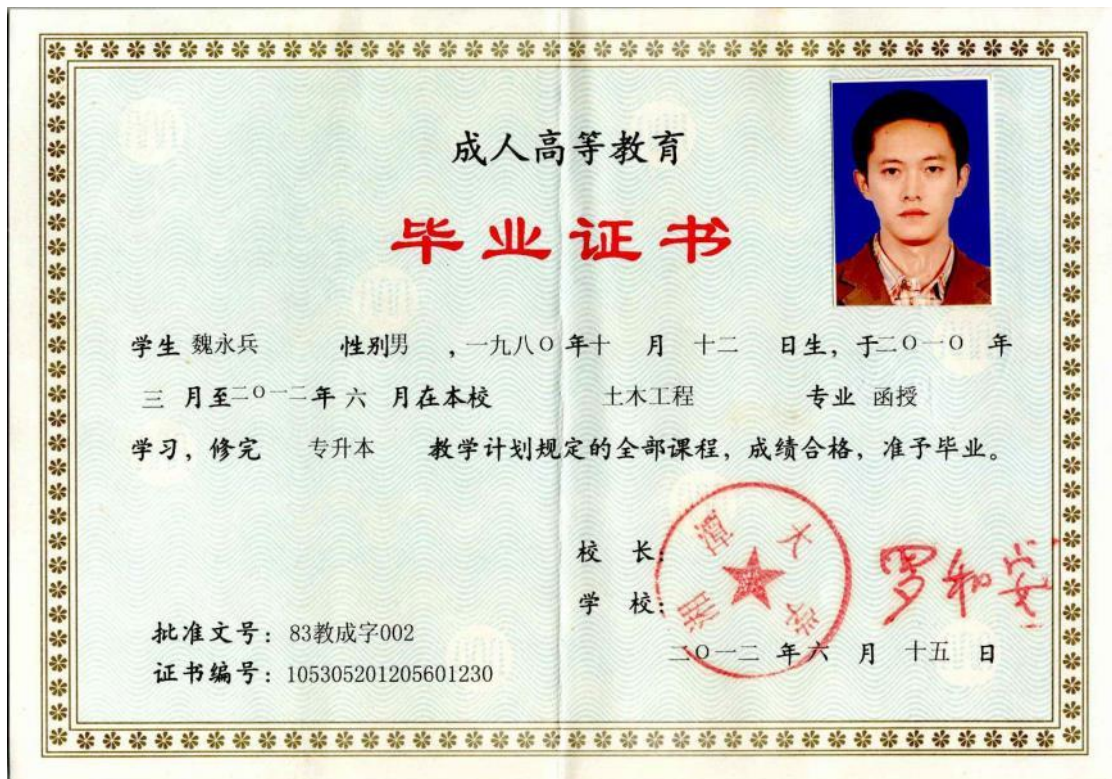 成人高等教育
毕业证书
学生 魏永兵 性别男 ，一九八〇年十 月 十二 日生，于二〇一〇 年
三 月至二〇一二年 六 月在本校 土木工程 专业 函授
学习，修完 专升本 教学计划规定的全部课程，成绩合格，准予毕业。
校 长： 罗和安
学 校： 湘潭大学
批准文号：83教成字002
二〇一二 年六 月 十五 日
证书编号：105305201205601230